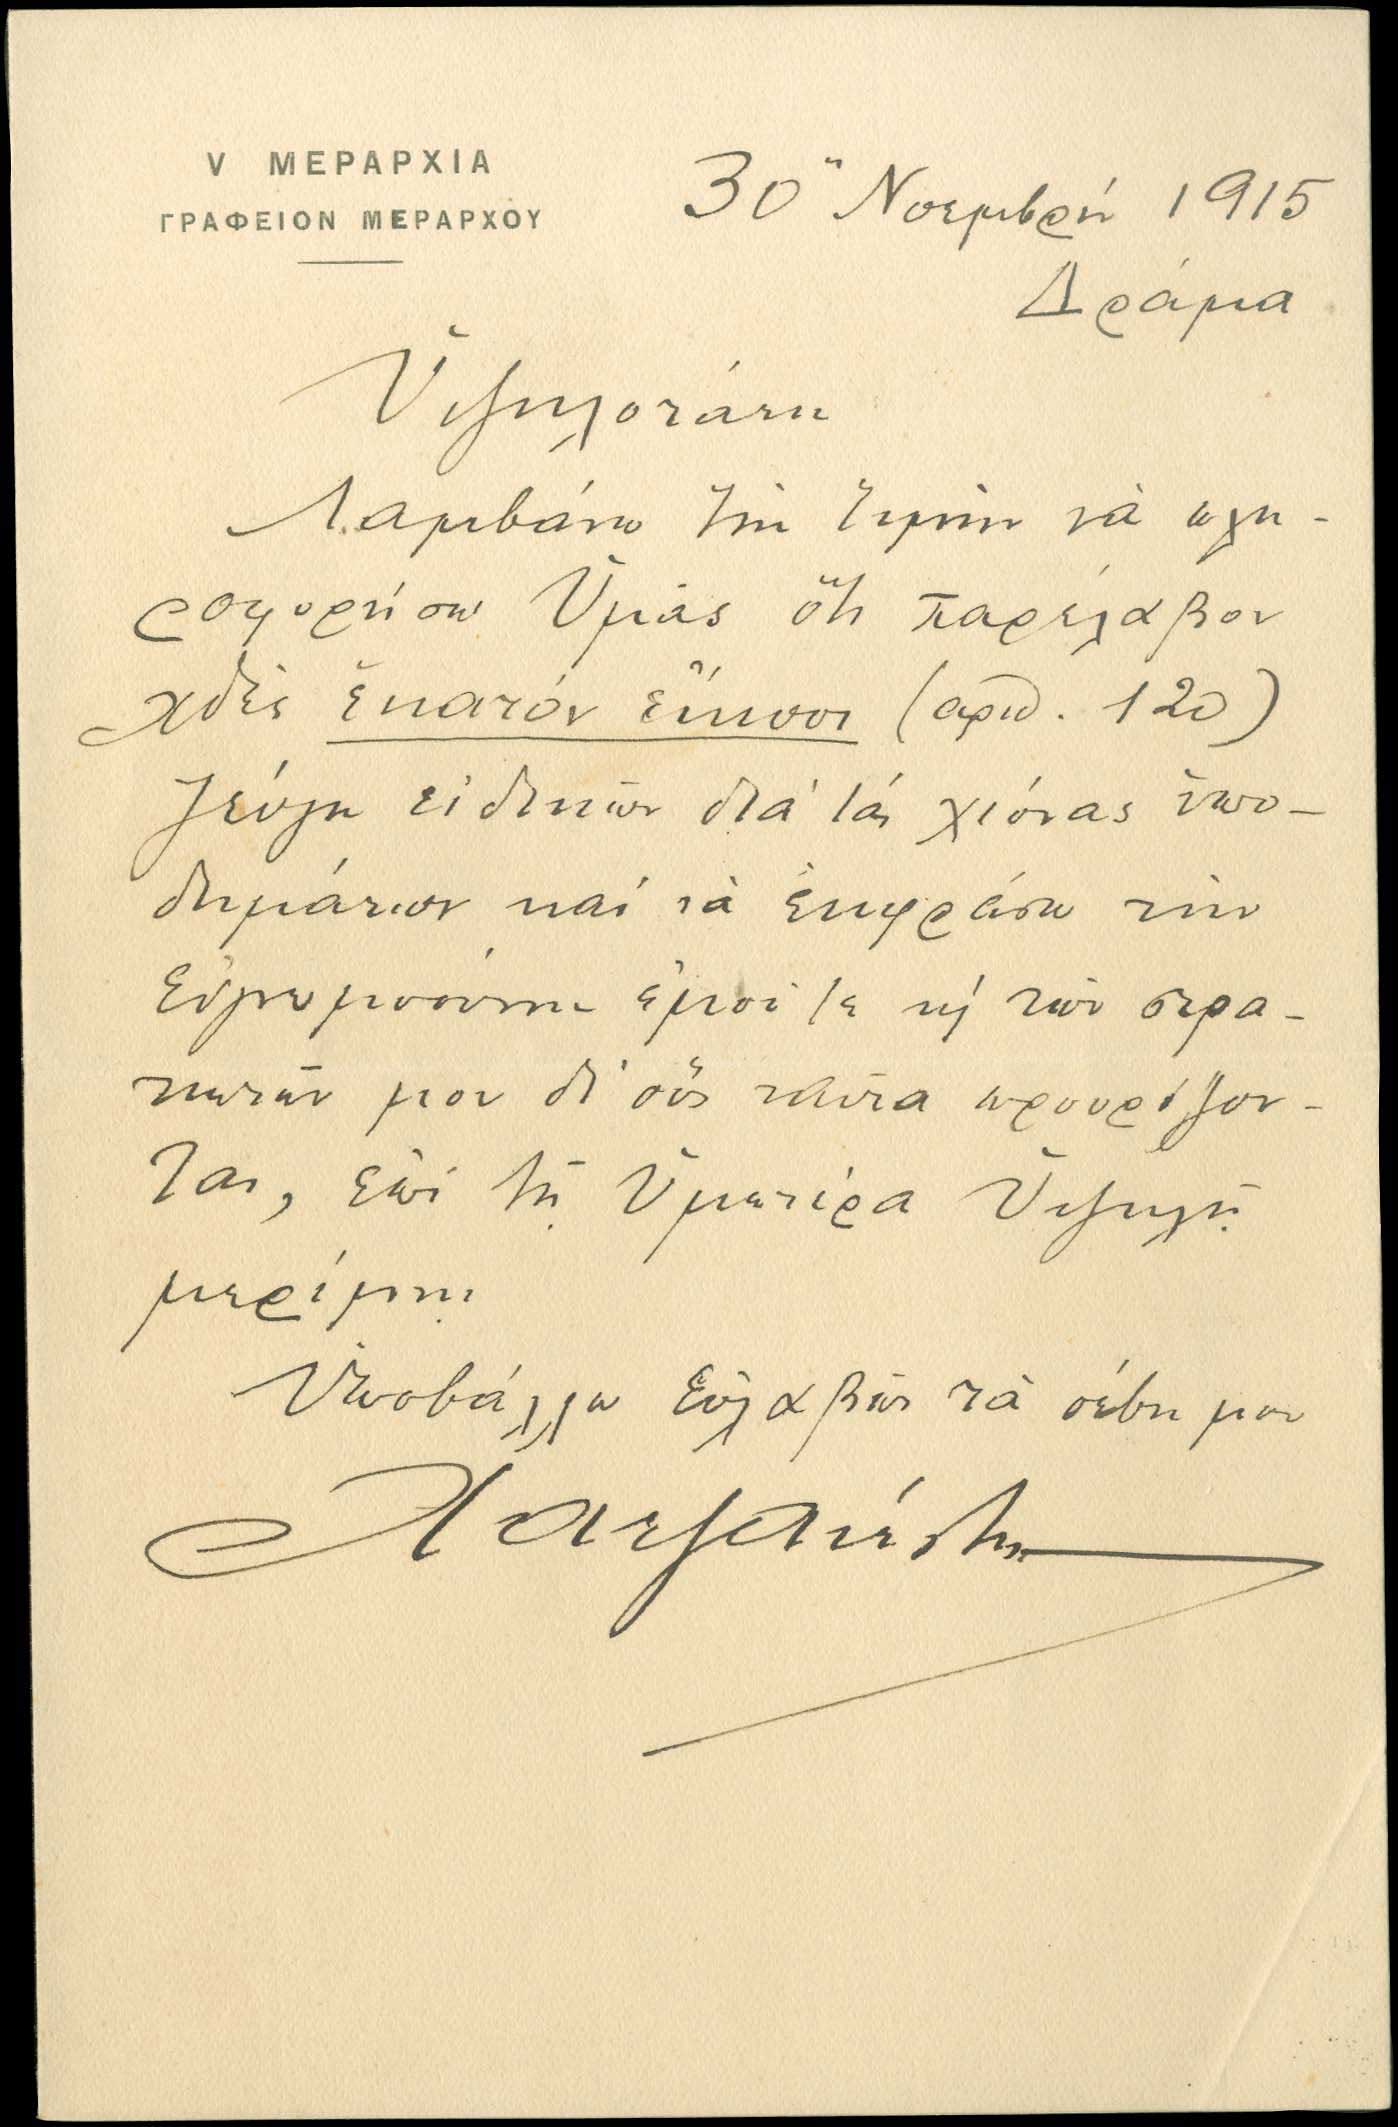 V ΜΕΡΑΡΧΙΑ
ΓΡΑΦΕΙΟΝ ΜΕΡΑΡΧΟΥ
30 Νοεμβρίου 1915
Δράμα
Ὑψηλοτάτη
Λαμβάνω τὴν τιμὴν νὰ πλη-
ροφορήσω Ὑμᾶς ὅτι παρέλαβον
χθὲς ἑκατόν εἴκοσι (αριθ. 120)
ζεύγη εἰδικῶν διὰ τάς χιόνας ὑπο-
δημάτων καί νὰ ἐκφράσω τὴν
εὐγνωμοσύνην ἐμοί τε κ̀ τῶν στρα-
τιωτῶν μου δι' οὓς ταῦτα προορίζον-
ται, ἐπί τῇ Ὑμετέρα Ὑψηλῇ
μερίμνῃ
Ὑποβάλλω εὐλαβῶς τὰ σέβη μου